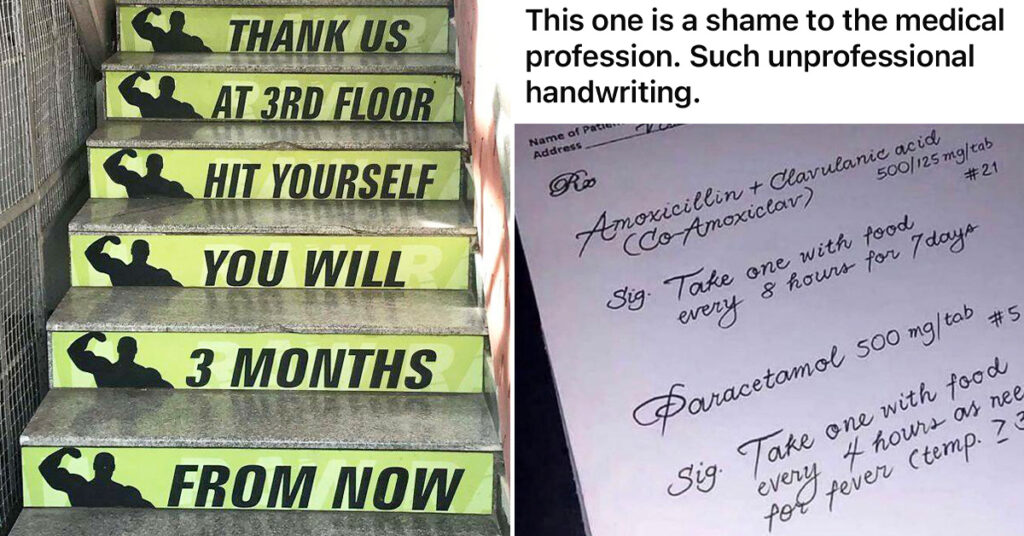 THANK US
AT 3RD FLOOR
HIT YOURSELF
YOU WILL
3 MONTHS
FROM NOW
This one is a shame to the medical
profession. Such unprofessional
handwriting.
Name of
Address
Rx
Amoxicillin + Clavulanic acid
500/125 mg/tab
(Co-Amoxiclav)
#21
Sig. Take one with food
every 8 hours for 7 days
Paracetamol 500 mg/tab #5
Sig. Take one with food
every 4 hours as nee
for fever (temp. ≥ 3